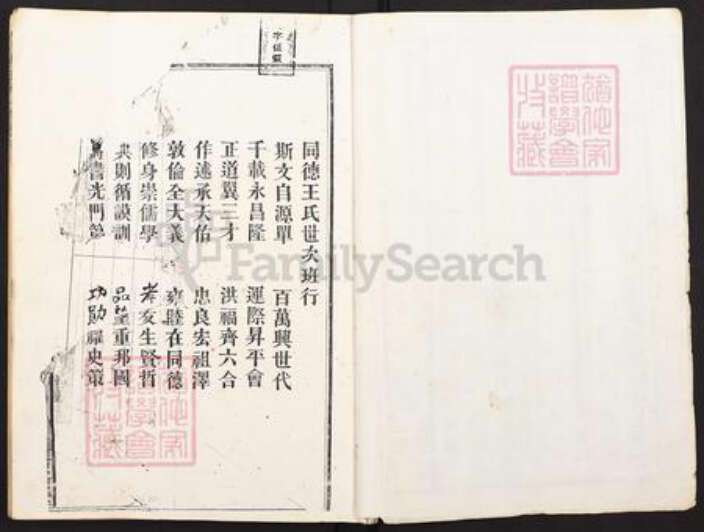 同德王氏世次班行
斯文自源單 百萬興世代
千載永昌隆 運際昇平會
正道翼三才 洪福齊六合
作述承天佑 忠良宏祖澤
敦倫全大義 雍睦在同德
修身崇儒學 孝友生賢哲
典則循謨訓 品望重邦國
書光門第 功勛耀史策
猶他家譜學會收藏
猶他家譜學會收藏
FamilySearch